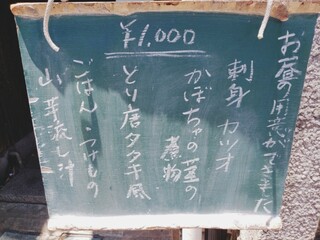 お昼の用意ができました
¥1,000
刺身 カツオ
かぼちゃの煮物
とり唐タタキ風
ごはん・つけもの
山芋流し汁